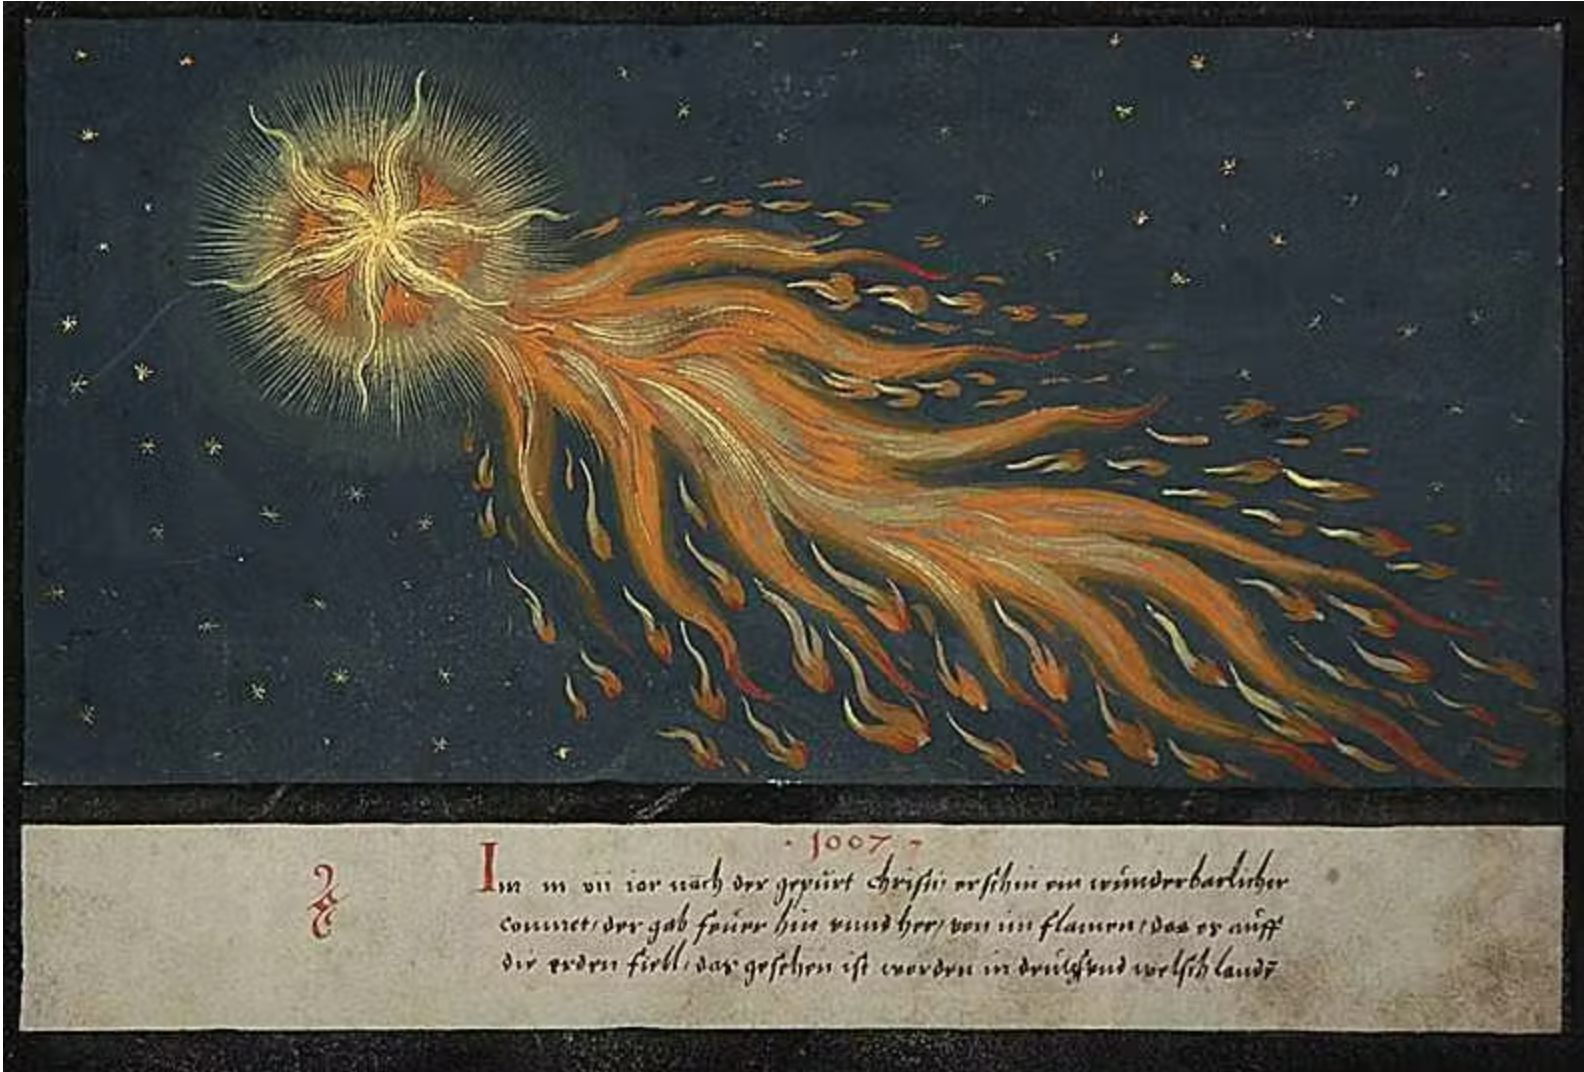 · 1007 ·
Im m vii iar nach der gepurt Christi erschin ein wunderbarlicher
comet / der gab feuer hin vnnd her / von im flamen / das es auff
die erden fiell / das gesehen ist worden in deutsch vnd welsch lande